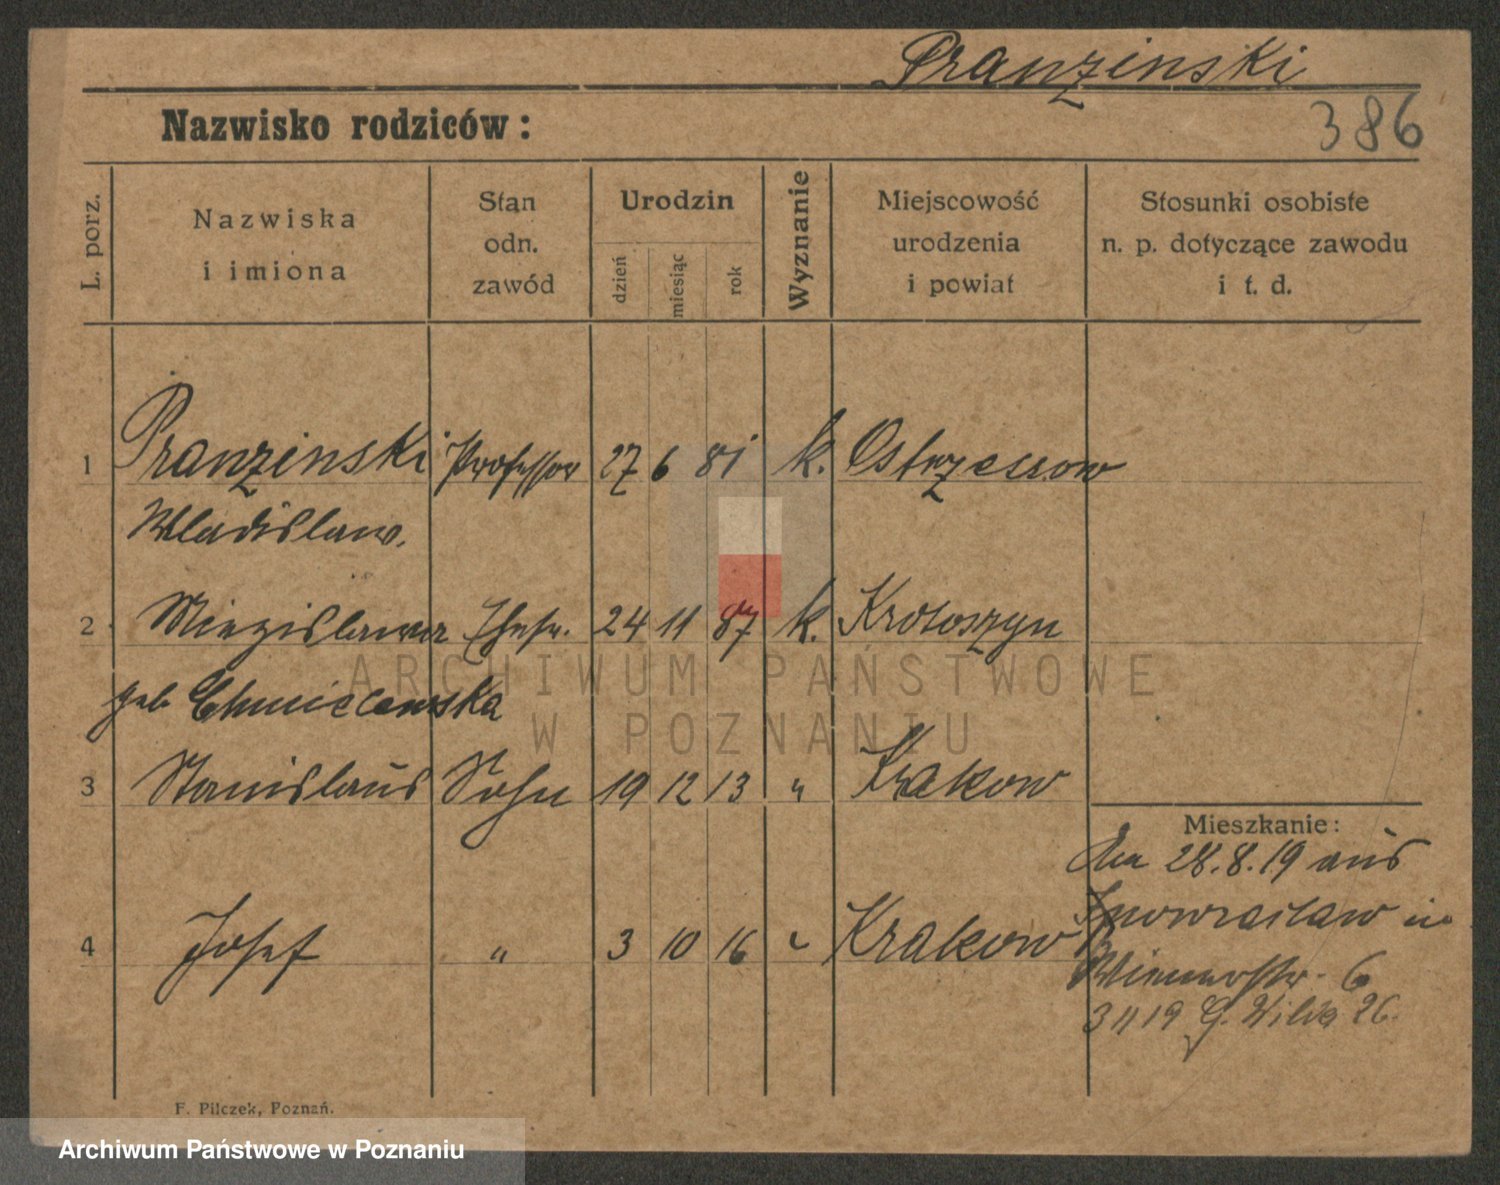 Pranzinski
Nazwisko rodziców:
386
L. porz.
Nazwiska
i imiona
Stan
odn.
zawód
Urodzin
dzień
miesiąc
rok
Wyznanie
Miejscowość
urodzenia
i powiat
Stosunki osobiste
n. p. dotyczące zawodu
i t. d.
1 Pranzinski Professor 27 6 81 k. Ostrzeszow
Wladislaw.
2 Miezislawa Ehefr. 24 11 87 k. Krotoszyn
geb Chmielewska
ARCHIWUM PAŃSTWOWE
W POZNANIU
3 Stanislaus Sohn 19 12 13 " Krakow
Mieszkanie:
28.8.19 aus
4 Josef " 3 10 16 " Krakow
Inowraclaw in
6
3 11 19 G. Wilda 26.
F. Pilczek, Poznań.
Archiwum Państwowe w Poznaniu